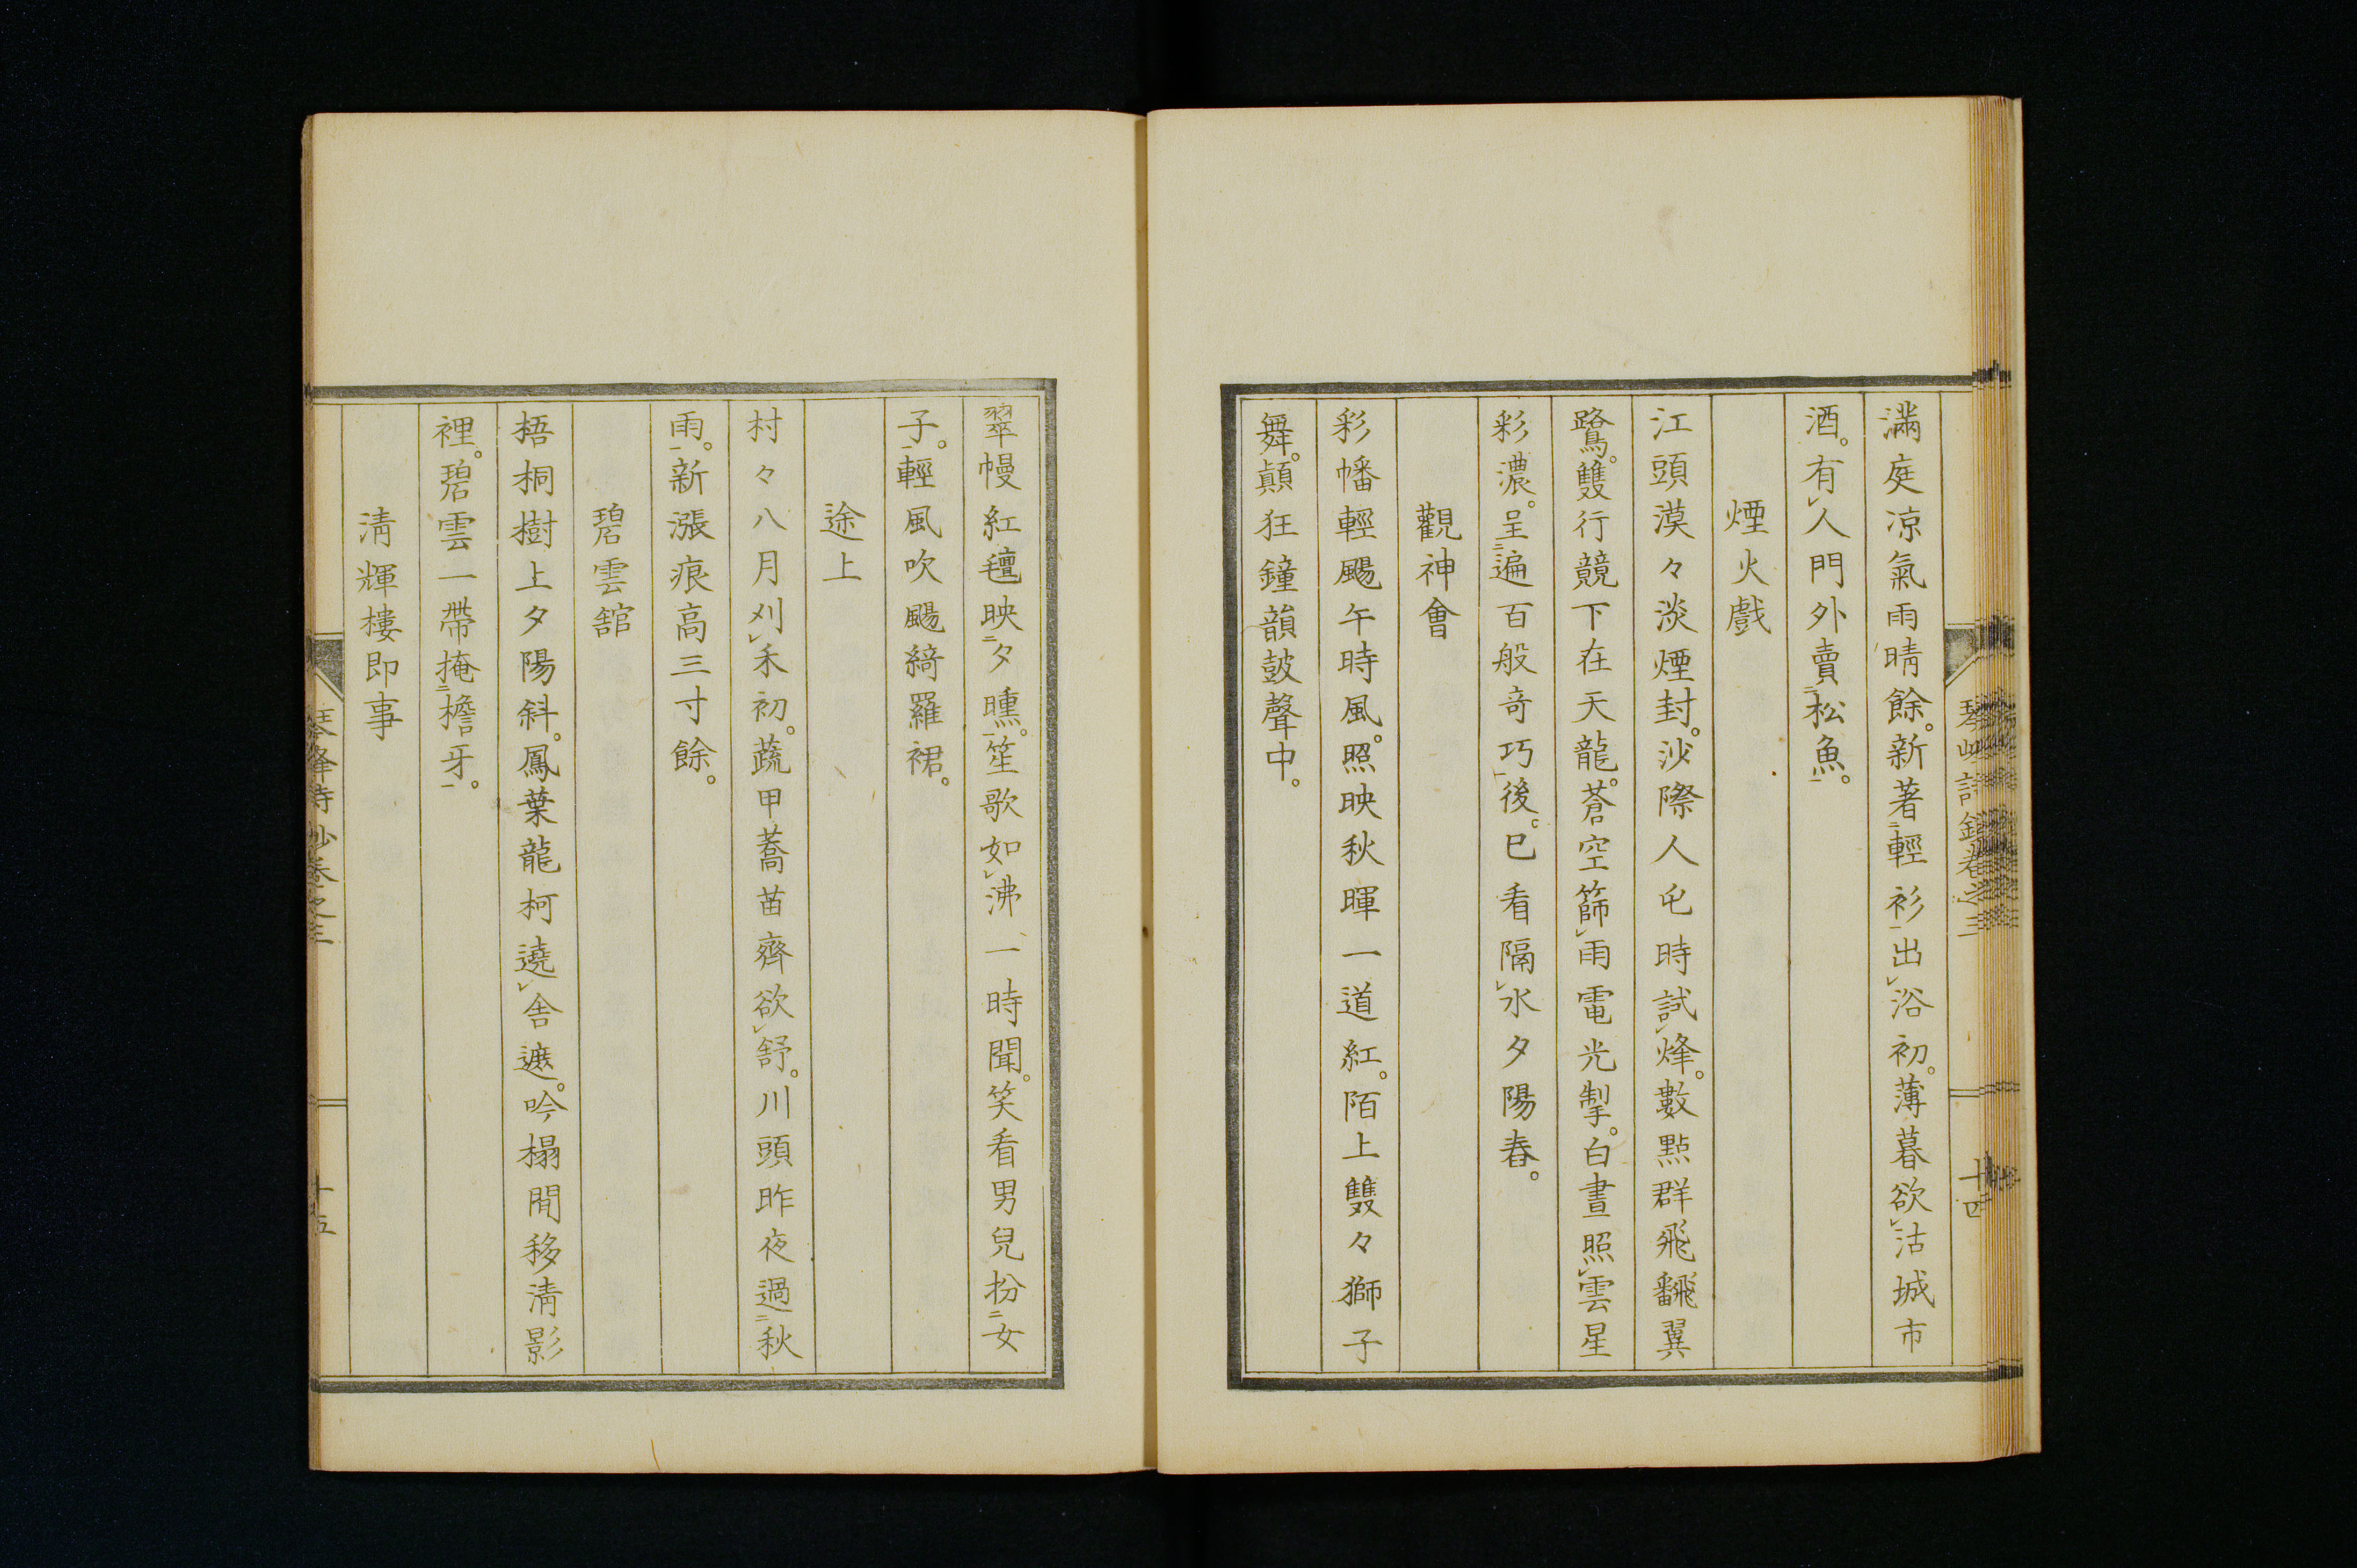 滿庭凉氣雨晴餘。新著輕衫出浴初。薄暮欲沽城市
酒。有人門外賣松魚。
煙火戲
江頭漠々淡煙封。沙際人屯時試烽。數點群飛翻翼
鷺。雙行競下在天龍。蒼空篩雨電光掣。白晝照雲星
彩濃。呈遍百般竒巧後。已看隔水夕陽舂。
觀神會
彩幡輕颺午時風。照映秋暉一道紅。陌上雙々獅子
舞。顛狂鐘韻鼓聲中。
翠幔紅氊映夕曛。笙歌如沸一時聞。笑看男兒扮女
子。輕風吹颺綺羅裙。
途上
村々八月刈禾初。蔬甲蕎苗齊欲舒。川頭昨夜過秋
雨。新漲痕高三寸餘。
碧雲舘
梧桐樹上夕陽斜。鳳葉龍柯遶舍遮。吟榻間移淸影
裡。碧雲一帶掩檐牙。
淸輝樓即事
琴峰詩鈔卷之三
十五